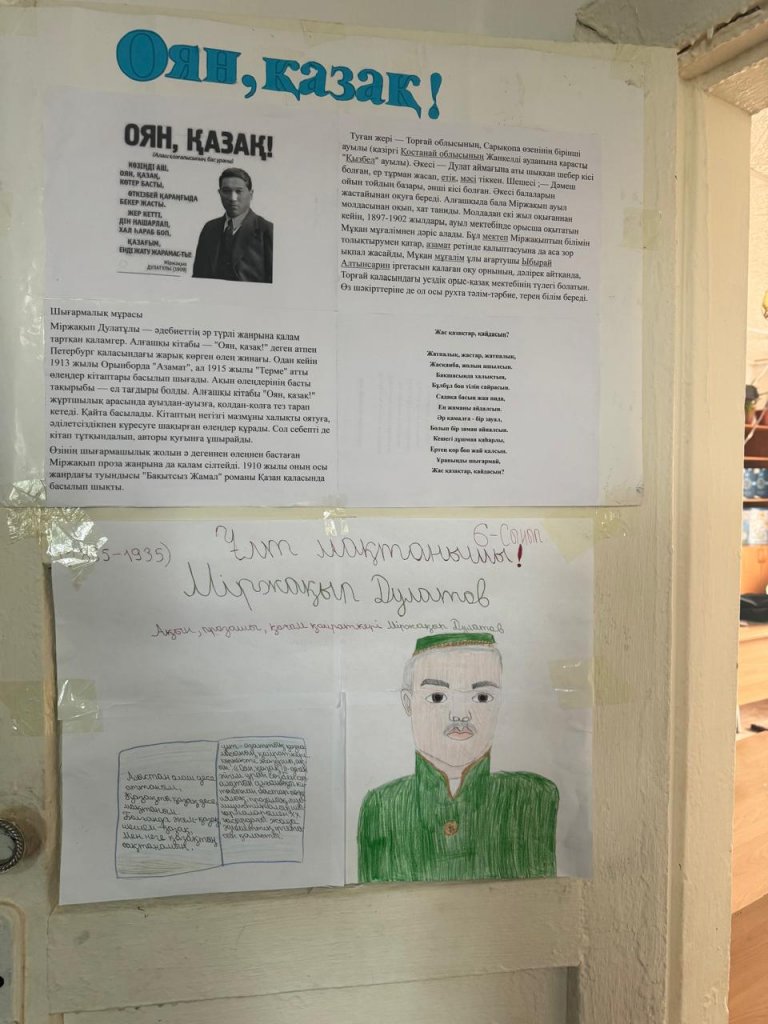 Оян, қазақ!
ОЯН, ҚАЗАҚ!
КӨЗІҢДІ АШ,
ОЯН, ҚАЗАҚ,
КӨТЕР БАСТЫ,
ӨТКІЗБЕЙ ҚАРАҢҒЫДА
БЕКЕР ЖАСТЫ.
ЖЕР КЕТТІ,
ДІН НАШАРЛАП,
ХАЛ ҺАРАБ БОП,
ҚАЗАҒЫМ,
ЕНДІ ЖАТУ ЖАРАМАС-ТЫ!
Міржақып
ДУЛАТҰЛЫ (1909)
Туған жері — Торғай облысының, Сарықопа өзенінің бірінші
ауылы (қазіргі Қостанай облысының Жанкелді ауданына қарасты
"Қызбел" ауылы). Әкесі — Дулат аймағына аты шыққан шебер кісі
болған, ер тұрман жасап, етік, мәсі тіккен. Шешесі ;— Дәмеш
ойын тойдың базары, әнші кісі болған. Әкесі балаларын
жастайынан оқуға береді. Алғашқыда бала Міржақып ауыл
молдасынан оқып, хат таниды. Молдадан екі жыл оқығаннан
кейін, 1897-1902 жылдары, ауыл мектебінде орысша оқытатын
Мұқан мұғалімнен дәріс алады. Бұл мектеп Міржақыптың білімін
толықтырумен қатар, азамат ретінде қалыптасуына да аса зор
ықпал жасайды, Мұқан мұғалім ұлы ағартушы Ыбырай
Алтынсарин іргетасын қалаған оқу орнының, дәлірек айтқанда,
Торғай қаласындағы уездік орыс-қазақ мектебінің түлегі болатын.
Өз шәкірттеріне де ол осы рухта тәлім-тәрбие, терең білім береді.
Шығармалық мұрасы
Міржақып Дулатұлы — әдебиеттің әр түрлі жанрына қалам
тартқан қаламгер. Алғашқы кітабы — "Оян, қазақ!" деген атпен
Петербург қаласындағы жарық көрген өлең жинағы. Одан кейін
1913 жылы Орынборда "Азамат", ал 1915 жылы "Терме" атты
өлеңдер кітаптары басылып шығады. Ақын өлеңдерінің басты
тақырыбы — ел тағдыры болды. Алғашқы кітабы "Оян, қазақ!"
жұртшылық арасында ауыздан-ауызға, қолдан-қолға тез тарап
кетеді. Қайта басылады. Кітаптың негізгі мазмұны халықты оятуға,
әділетсіздікпен күресуге шақырған өлеңдер құрады. Сол себепті де
кітап тұтқындалып, авторы қуғынға ұшырайды.
Өзінің шығармашылық жолын ә дегеннен өлеңнен бастаған
Міржақып проза жанрына да қалам сілтейді. 1910 жылы оның осы
жанрдағы туындысы "Бақытсыз Жамал" романы Қазан қаласында
басылып шықты.
Жас қазақтар, қайдасың?
Жатпалық, жастар, жатпалық,
Жасқанба, жолың ашылсын.
Бақшасында халықтың,
Бұлбұл боп тілің сайрасын.
Садаққа басың жан пида,
Ең жаманы айдалсын.
Әр қамалға - бір зауал,
Болып бір заман айналсын.
Кешегі дұшман қаһарлы,
Ертең қор боп жай қалсын.
Ұраныңды шығармай,
Жас қазақтар, қайдасың?
5-1935)
6-Сынып
Ұлт мақтанышы!
Міржақып Дулатов
Ақын, прозашы, қоғам қайраткері Міржақып Дулатов
Алаштан алаш десе
Қазақты қазақ десе
Мен неге қазақтың